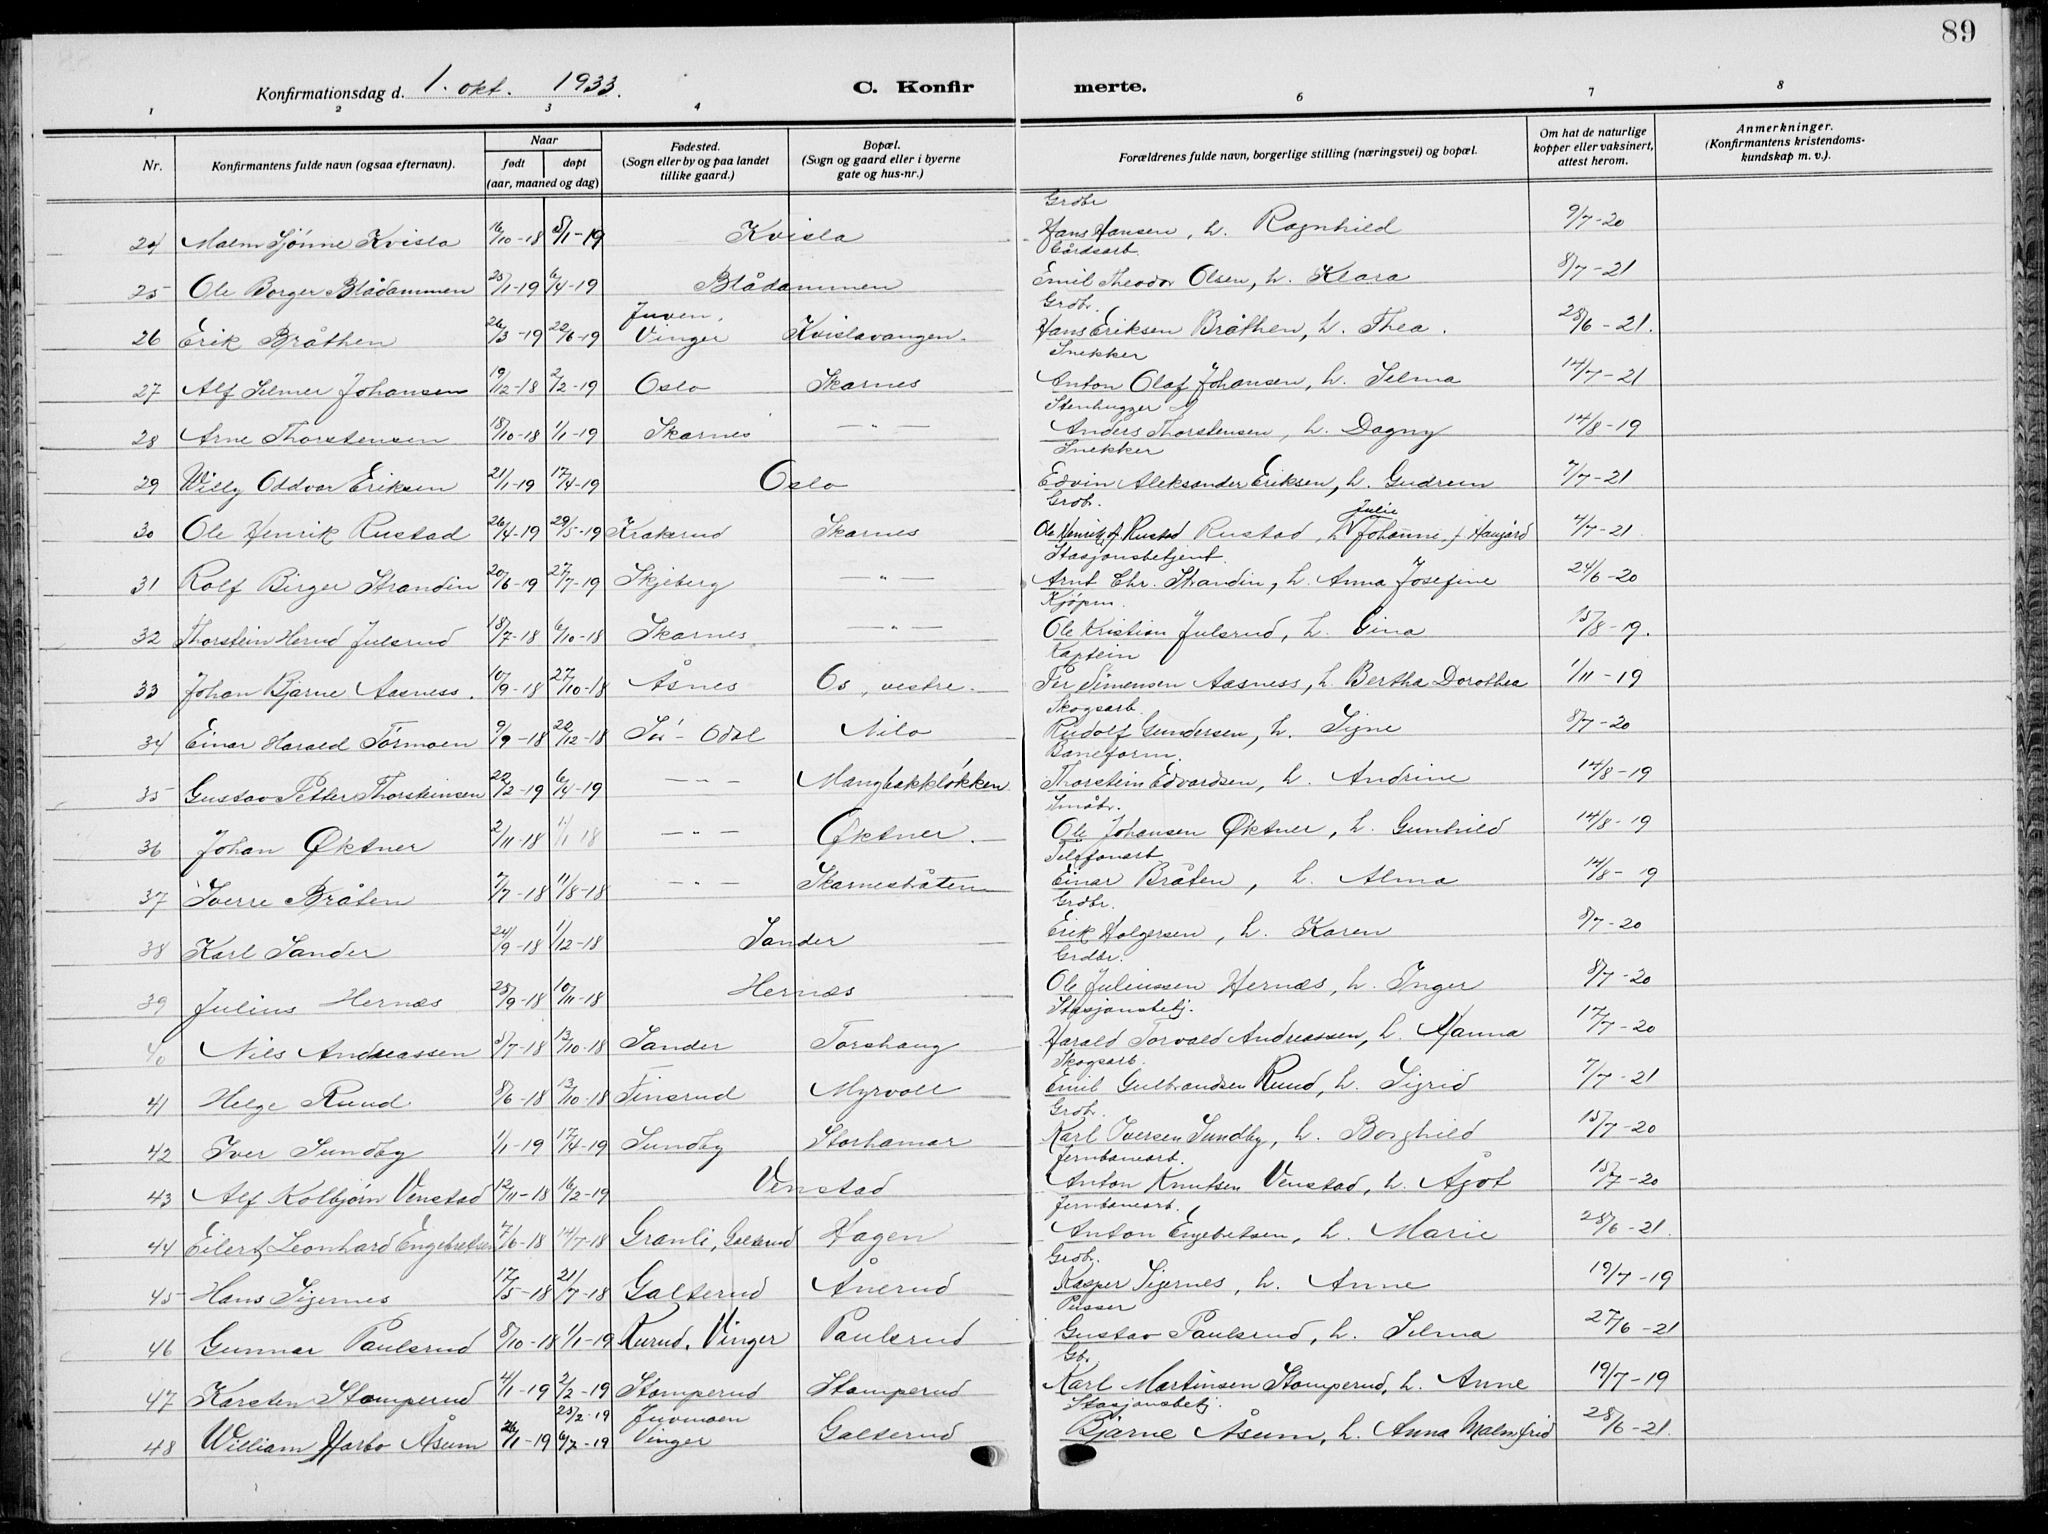 89
Konfirmationsdag d. 1. okt. 1933.
C. Konfir merte.
1 2 3 4 6 7 8
Nr. Konfirmantens fulde navn (ogsaa efternavn). Naar født døpt (aar, maaned og dag) Fødested. (Sogn eller by og paa landet tillike gaard.) Bopæl. (Sogn og gaard eller i byerne gate og hus-nr.) Forældrenes fulde navn, borgerlige stilling (næringsvei) og bopæl. Om hat de naturlige kopper eller vaksinert, attest herom. Anmerkninger. (Konfirmantens kristendomskundskap m. v.).
Grdbr
24 Malm Sjønne Kvisla 16/10-18 5/1-19 Kvisla Hans Hansen, h. Ragnhild 9/7-20
Gårdsarb.
25 Ole Borger Blådammen 25/1-19 6/4-19 Blådammen Emil Theodor Olsen, h. Klara 8/7-21
Juven, Grdb.
26 Erik Bråthen 26/3-19 22/6-19 Vinger Kvislavangen. Hans Eriksen Bråthen, h. Thea. 28/6-21.
Snekker
27 Alf Selmer Johansen 19/12-18 2/2-19 Oslo Skarnes Anton Olaf Johansen, h. Selma 14/7-21
Stenhugger
28 Arne Thorstensen 18/10-18 1/1-19 Skarnes —"— Anders Thorstensen, h. Dagny 14/8-19
Snekker
29 Willy Oddvar Eriksen 21/1-19 17/4-19 Oslo Edvin Aleksander Eriksen, h. Gudrun 7/7-21
Grdb. Julie
30 Ole Henrik Rustad 26/4-19 29/5-19 Krakerud Skarnes Ole Henrik Rustad, h. Johanne, f. Haugård 4/7-21
Stasjonsbetjent.
31 Rolf Birger Strandin 20/6-19 27/7-19 Skjeberg —"— Arnt Chr. Strandin, h. Anna Josefine 24/6-20
Kjøpm.
32 Thorstein Herud Julsrud 18/7-18 6/10-18 Skarnes —"— Ole Kristian Julsrud, h. Gina 15/8-19.
Kaptein
33 Johan Bjarne Aasness. 10/9-18 27/10-18 Åsnes Os, vestre. Per Simensen Aasness, h. Bertha Dorothea 1/11-19
Skogsarb.
34 Einar Harald Tørmoen 9/9-18 22/12-18 Sør-Odal Nilo Rudolf Gundersen, h. Signe 8/7-20
Baneform.
35 Gustav Petter Thorsteinsen 22/2-19 6/4-19 —"— Mangbakkløkken Thorstein Edvardsen, h. Andrine 14/8-19
Småbr.
36 Johan Øktner 2/11-18 1/1 18 —"— Øktner. Ole Johansen Øktner, h. Gunhild 14/8-19
Telefonarb.
37 Sverre Bråten 7/7-18 11/8-18 —"— Skarnesbåten Einar Bråten, h. Alma 14/8-19
Grdbr.
38 Karl Sander 24/9-18 1/12-18 Sander Erik Holgersen, h. Karen 8/7-20
Grdbr.
39 Julius Hernæs 25/9-18 10/11-18 Hernæs Ole Juliussen Hernæs, h. Inger 8/7-20
Stasjonsbetj.
40 Nils Andreassen 5/7-18 13/10-18 Sander Torshaug Harald Torvald Andreassen, h. Hanna 17/7-20
Skogsarb.
41 Helge Ruud. 8/6-18 13/10-18 Finsrud Myrvoll Emil Gulbrandsen Ruud, h. Sigrid 7/7-21
Grdb.
42 Iver Sundby 1/1-19 17/4-19 Sundby Storhamar Karl Iversen Sundby, h. Borghild 15/7-20
Jernbanearb.
43 Alf Kolbjørn Venstad 12/11-18 16/2-19 Venstad Anton Knutsen Venstad, h. Ågot 15/7-20
Jernbanearb.
44 Eilert Leonhard Engebretsen 7/6-18 14/7-18 Granli, Galterud Hagen Anton Engebretsen, h. Marie 28/6-21.
Grdb.
45 Hans Sigernes 17/5-18 21/7-18 Galterud Ånerud Kasper Sigernes, h. Anne 19/7-19
Pusser
46 Gunnar Paulsrud 8/10-18 1/1-19 Rurud, Vinger Paulsrud Gustav Paulsrud, h. Selma 27/6-21
Gb.
47 Karsten Stomperud 4/1-19 2/2-19 Stomperud Stomperud Karl Martinsen Stomperud, h. Anne 19/7-19
25/2-19 Juvmoen Stasjonsbetj.
48 William Harbo Åsum 26/1-19 6/7-19 Vinger Galterud Bjarne Åsum, h. Anna Malmfrid 28/6-21.